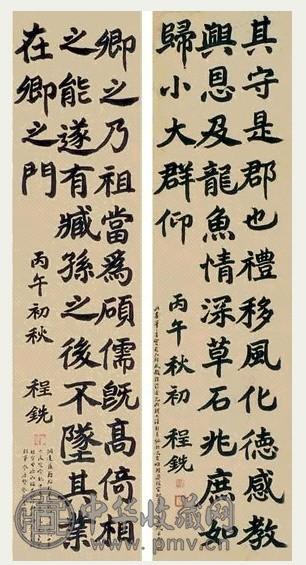 其守是郡也禮移風化德感教
興恩及龍魚情深草石兆庶如
歸小大群仰
丙午秋初 程銑
卿之乃祖當為碩儒既高倚相
之能遂有臧孫之後不墜其業
在卿之門
丙午初秋 程銑
中华收藏网
www.pmv.cn